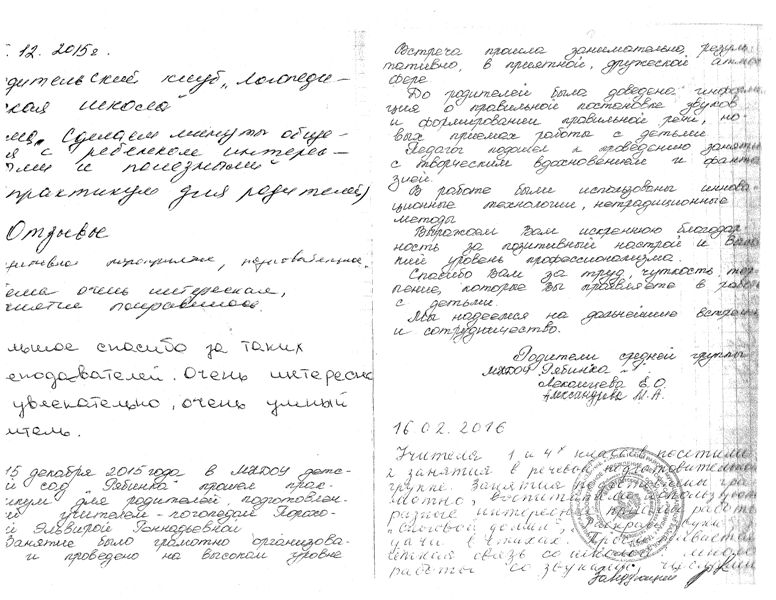 12. 2015г.
дительский клуб „Логопеди-
ская школа"
ма „Сделаем минуты обще-
я с ребенком интерес-
ыми и полезными"
практикум для родителей)
Отзывы
ема очень интересная,
нятие понравилось.
льшое спасибо за таких
еподавателей. Очень интересно
увлекательно, очень умный
итель.
15 декабря 2015 года в МКДОУ детс-
й сад „Рябинка" прошел прак-
икум для родителей, подготовлен-
й учителем-логопедом
й Эльвирой Геннадьевной
Занятие было грамотно организова-
и проведено на высоком уровне
Встреча прошла занимательно, резуль-
тативно, в приятной, дружеской атмос
сфере
До родителей была доведена информ
ция о правильной постановке звуков
и формировании правильной речи, но-
вых приемах работы с детьми
Педагог подошел к проведению занятия
с творческим вдохновением и фанта
зией.
В работе были использованы иннова-
ционные технологии, нетрадиционные
методы
Выражаем Вам искреннюю благодар-
ность за позитивный настрой и высо
кий уровень профессионализма.
Спасибо Вам за труд, чуткость, тер-
пение, которые Вы проявляете в работе
с детьми.
Мы надеемся на дальнейшие встречи
и сотрудничество.
Родители средней группы
МКДОУ Рябинка
Е.О.
Александрова М.А.
16 02. 2016
Учителя 1 и 4х классов посетили
2 занятия в речевой
группе. Занятия построены гра
мотно,
разные интересные приемы работы
связь со школой, много
работы со звуками,